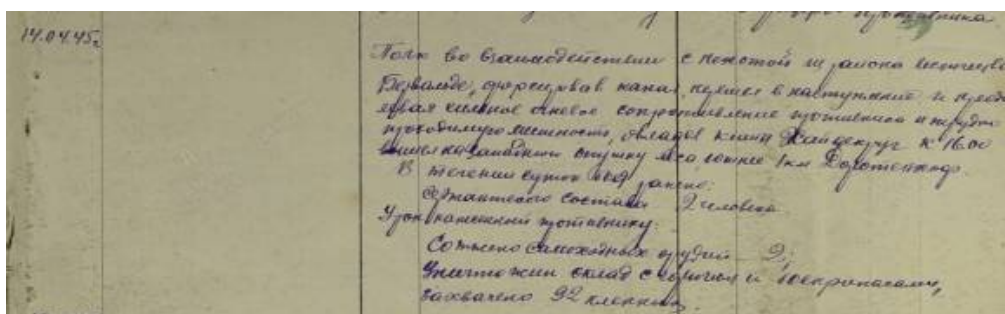 противника
14.04.45г.
Полк во взаимодействии с пехотой из района
Бервальде, форсировав канал, перешел в наступление и преодо-
левая сильное огневое сопротивление противника и трудно
проходимую местность, овладев Хайдекруг к 16.00
вышел на западную опушку леса южнее 1 км
В течении суток ранено:
Сержантского состава 2 человека
Урон нанесенный противнику:
Сожжено самоходных орудий - 2,
Уничтожен склад с горючим и боеприпасами,
захвачено 92 пленных.